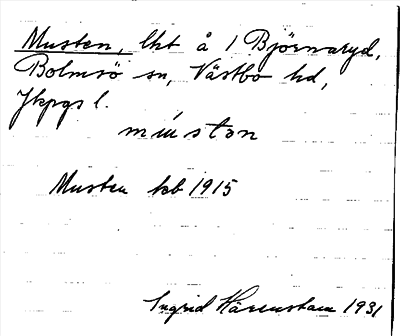 Musten, lht å 1 Björnaryd,
Bolmsö sn, Västbo hd,
Jkpgs l.
mùston
Musten kb 1915
Ingrid Härenstam 1931